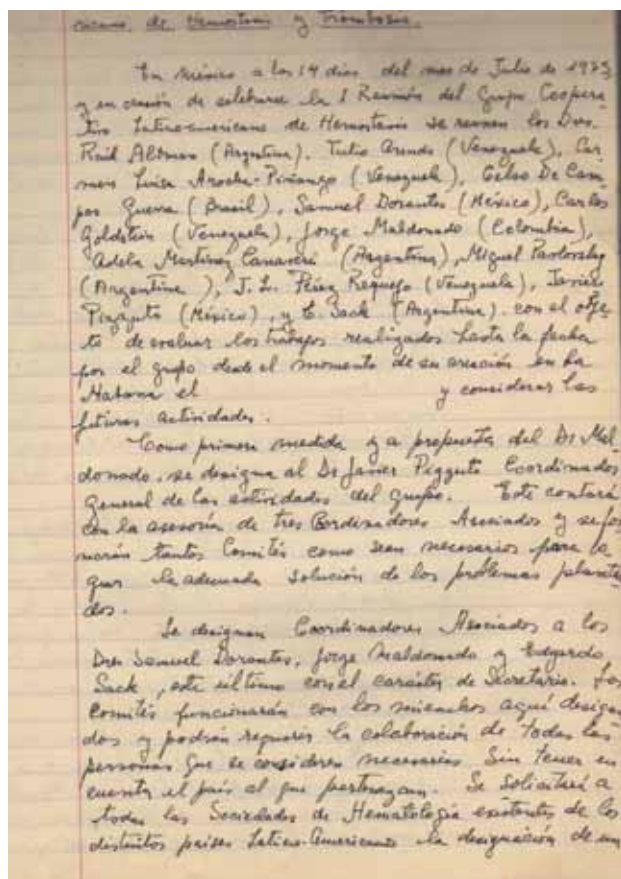 ricano de Hemostasis y Trombosis.
En México a los 14 dias del mes de Julio de 1975
y en ocasión de celebrarse la I Reunión del Grupo Coopera-
tivo Latinoamericano de Hemostasis se reunen los Dres.
Raúl Altman (Argentina). Tulio Arends (Venezuela), Car
men Luisa Arocha-Piñango (Venezuela), Celso De Cam
pos Guerra (Brasil), Samuel Dorantes (México), Carlos
Goldstein (Venezuela), Jorge Maldonado (Colombia),
Adela Martinez Canaveri (Argentina), Miguel Pavlovsky
(Argentina), J. L. Pérez Requejo (Venezuela), Javier
Pizzuto (México), y E. Sack (Argentina). con el obje
to de evaluar los trabajos realizados hasta la fecha
por el grupo desde el momento de su creación en La
Habana el y considerar las
futuras actividades.
Como primera medida y a propuesta del Dr Mal
donado. se designa al Dr Javier Pizzuto Coordinador
General de las actividades del grupo. Este contará
con la asesoría de tres Cordinadores Asociados y se for
marán tantos Comités como sean necesarios para lo
grar la adecuada solución de los problemas plantea
dos.
Se designan Coordinadores Asociados a los
Dres Samuel Dorantes, Jorge Maldonado y Edgardo
Sack, este último con el carácter de Secretario. Los
Comités funcionarán con los miembros aquí designa
dos y podrán requerir la colaboración de todas las
personas que se consideren necesarias sin tener en
cuenta el país al que pertenezcan. Se solicitará a
todas las Sociedades de Hematología existentes de los
distintos países Latino-Americanos la designación de un